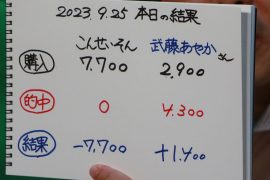 2023.9.25 本日の結果
こんせいそん 武藤あやかさん
購入 7.700 2,900
的中 0 4.300
結果 -7,700 +1.400